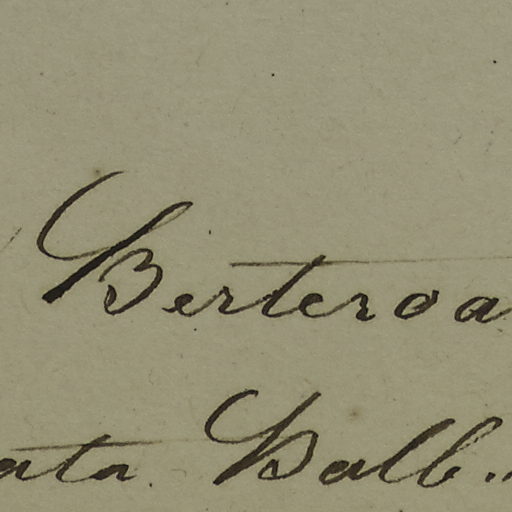 Berteroa
ata Balb.